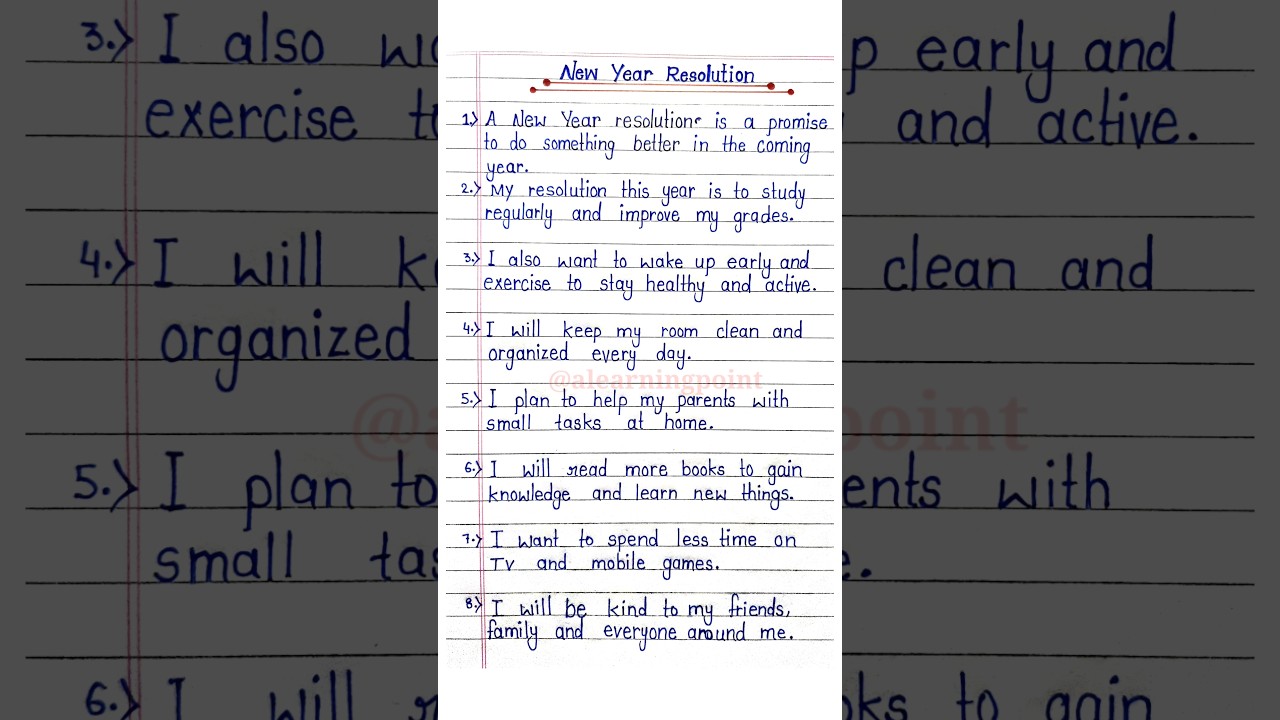 New Year Resolution
1.) A New Year resolution is a promise
to do something better in the coming
year.
2.) My resolution this year is to study
regularly and improve my grades.
3.) I also want to wake up early and
exercise to stay healthy and active.
4.) I will keep my room clean and
organized every day.
@alearningpoint
5.) I plan to help my parents with
small tasks at home.
6.) I will read more books to gain
knowledge and learn new things.
7.) I want to spend less time on
TV and mobile games.
8.) I will be kind to my friends,
family and everyone around me.